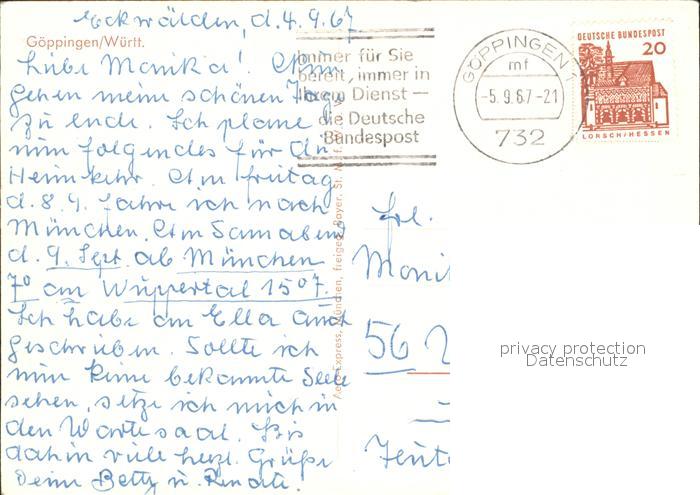 Eckwälden, d. 4.9.67
Göppingen/Württ.
Liebe Monika! Nun
gehen meine schönen Tage
zu ende. Ich plane
nun folgendes für die
Heimkehr. Am freitag
d. 8.9. fahre ich nach
München. Am Samabend
d. 9. Sept. ab München
7⁰ an Wuppertal 15⁰7.
Ich habe an Ella auch
geschrieben. Sollte ich
nun keine bekannte Seele
sehen, setze ich mich in
den Wartesaal. Bis
dahin viele herzl. Grüße
Deine Betty u. Renate.
Immer für Sie
bereit, immer in
Ihrem Dienst —
die Deutsche
Bundespost
GÖPPINGEN 1
mf
-5.9.67-21
732
DEUTSCHE BUNDESPOST
20
LORSCH/HESSEN
Aero-Express, München, freigeg. Bayer. St. M.
Frl.
Moni
56
privacy protection
Datenschutz